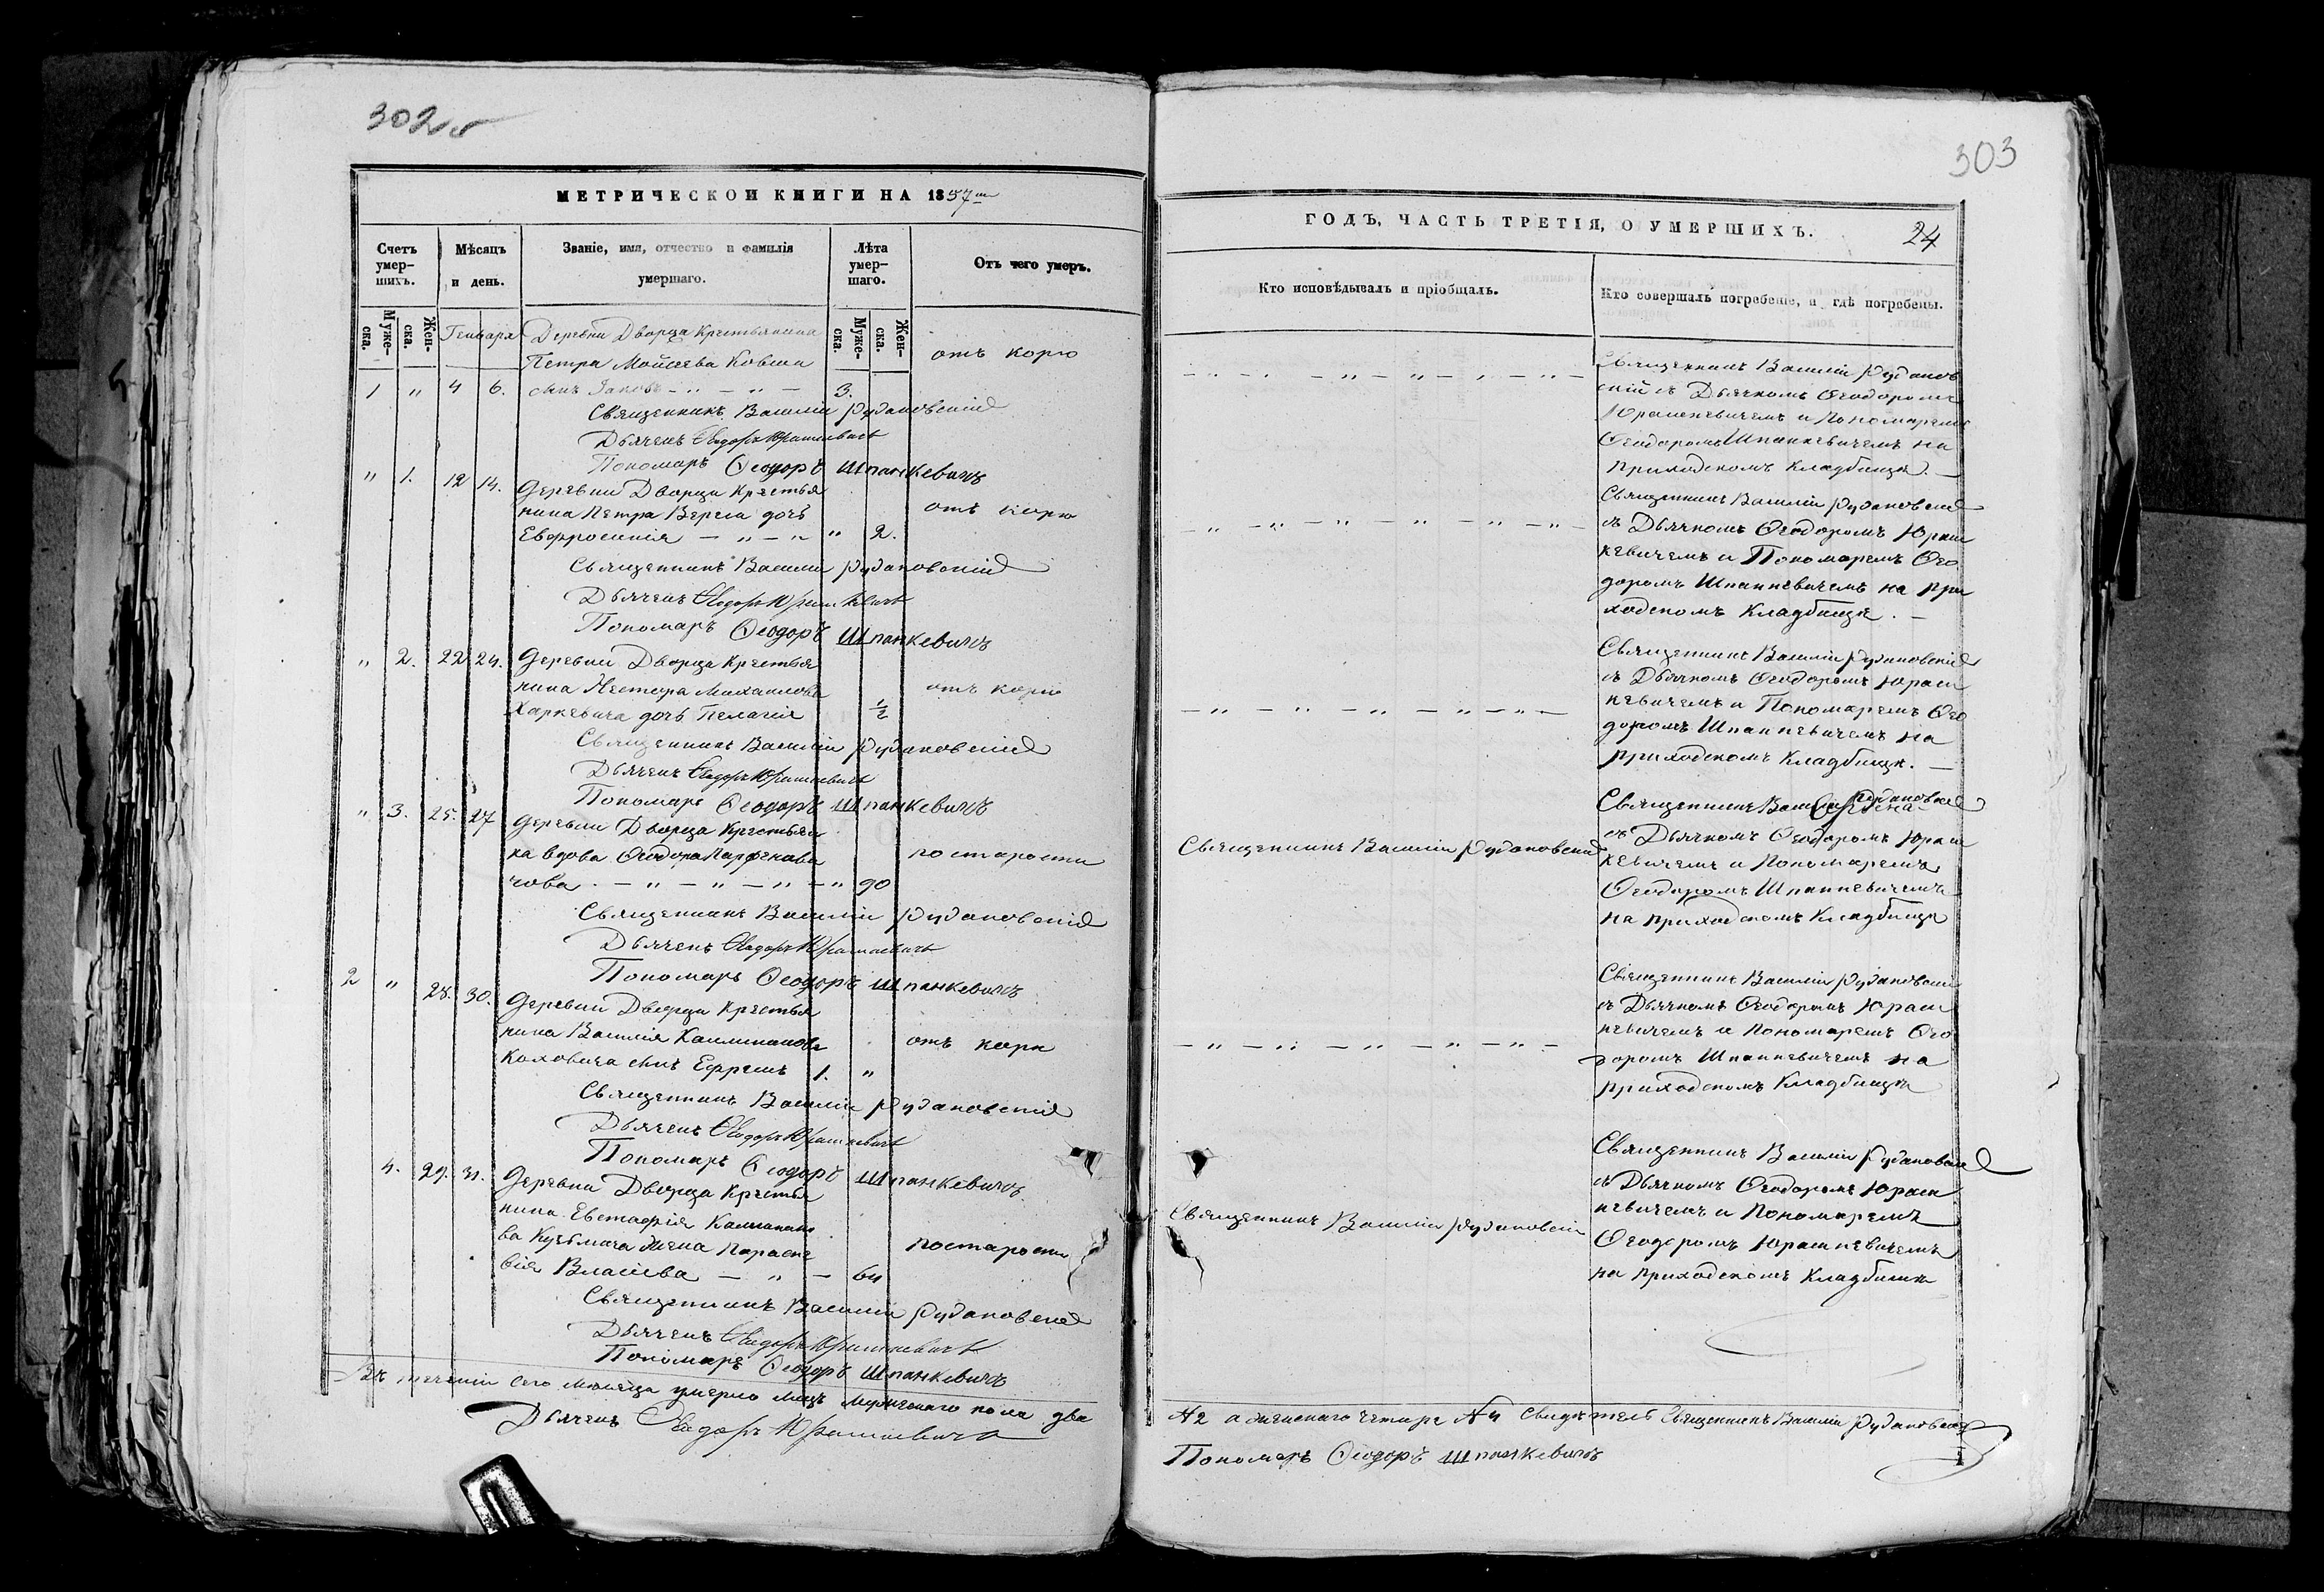 302 об
МЕТРИЧЕСКОЙ КНИГИ НА 1857 й
Счетъ умерших. Мѣсяцъ и день. Званіе, имя, отчество и фамилія умершаго. Лѣта умершаго. Отъ чего умеръ.
Мужеска. Женска. Генваря Мужеска. Женска.
Деревни Дворца Крестьянина
Петра Мойсеева Ковша отъ корю
1 " 4 6. сынъ Іаковъ - " - " - 3.
Священникъ Василій Рудаковскій
Дьячекъ Ѳеодоръ Юрашкевичъ
Пономаръ Ѳеодоръ Шпанкевичъ
" 1. 12 14. Деревни Дворца Крестья
нина Петра Верега дочь отъ корю
Евфросинія - " - " " 2.
Священникъ Василій Рудаковскій
Дьячекъ Ѳеодоръ Юрашкевичъ
Пономаръ Ѳеодоръ Шпанкевичъ
" 2. 22 24. Деревни Дворца Крестья
нина Нестора Михаилова отъ корю
Харкевича дочь Пелагія 1/2
Священникъ Василій Рудаковскій
Дьячекъ Ѳеодоръ Юрашкевичъ
Пономаръ Ѳеодоръ Шпанкевичъ
" 3. 25. 27 Деревни Дворца Крестьян
ка вдова Ѳеодора Парфенова по старости
чова. - " - " - " - " 90
Священникъ Василій Рудаковскій
Дьячекъ Ѳеодоръ Юрашкевичъ
Пономаръ Ѳеодоръ Шпанкевичъ
2 " 28. 30. Деревни Дворца Крестья
нина Василія Каллиникова отъ кори
Коховича сынъ Ефремъ 1. "
Священникъ Василій Рудаковскій
Дьячекъ Ѳеодоръ Юрашкевичъ
Пономаръ Ѳеодоръ Шпанкевичъ
4. 29. 31. Деревни Дворца Крестья
нина Евстафія
ва Кузьмича жена Параске по старости
вія Власіева - " - 64
Священникъ Василій Рудаковскій
Дьячекъ Ѳеодоръ Юрашкевичъ
Пономаръ Ѳеодоръ Шпанкевичъ
Въ теченіи сего мѣсяца умерло муж. мужескаго пола два
Дьячекъ Ѳеодоръ Юрашкевичъ
303
ГОДЪ, ЧАСТЬ ТРЕТІЯ, О УМЕРШИХЪ. 24
Кто исповѣдывалъ и пріобщалъ. Кто совершалъ погребеніе, и гдѣ погребены.
Священникъ Василій Рудаков
скій съ Дьячкомъ Ѳеодоромъ
Юрашкевичемъ и Пономаремъ
Ѳеодоромъ Шпанкевичемъ на
приходскомъ Кладбищѣ. -
Священникъ Василій Рудаковскій
съ Дьячкомъ Ѳеодоромъ Юраш
кевичемъ и Пономаремъ Ѳео
доромъ Шпанкевичемъ на при
ходскомъ Кладбищѣ. -
Священникъ Василій Рудаковскій
съ Дьячкомъ Ѳеодоромъ Юраш
кевичемъ и Пономаремъ Ѳео
доромъ Шпанкевичемъ на
приходскомъ Кладбищѣ. -
Священникъ Василій Рудаковскій
съ Дьячкомъ Ѳеодоромъ Юраш
Священникъ Василій Рудаковскій
кевичемъ и Пономаремъ
Ѳеодоромъ Шпанкевичемъ
на приходскомъ Кладбищѣ
Священникъ Василій Рудаковскій
съ Дьячкомъ Ѳеодоромъ Юраш
кевичемъ и Пономаремъ Ѳео
доромъ Шпанкевичемъ на
приходскомъ Кладбищѣ
Священникъ Василій Рудаковскій
съ Дьячкомъ Ѳеодоромъ Юраш
кевичемъ и Пономаремъ
Священникъ Василій Рудаковскій
Ѳеодоромъ Юрашкевичемъ
на приходскомъ Кладбищѣ
№2 а женскаго четыре №4 Свидѣтель Священникъ Василій Рудаковскій
Пономаръ Ѳеодоръ Шпанкевичъ